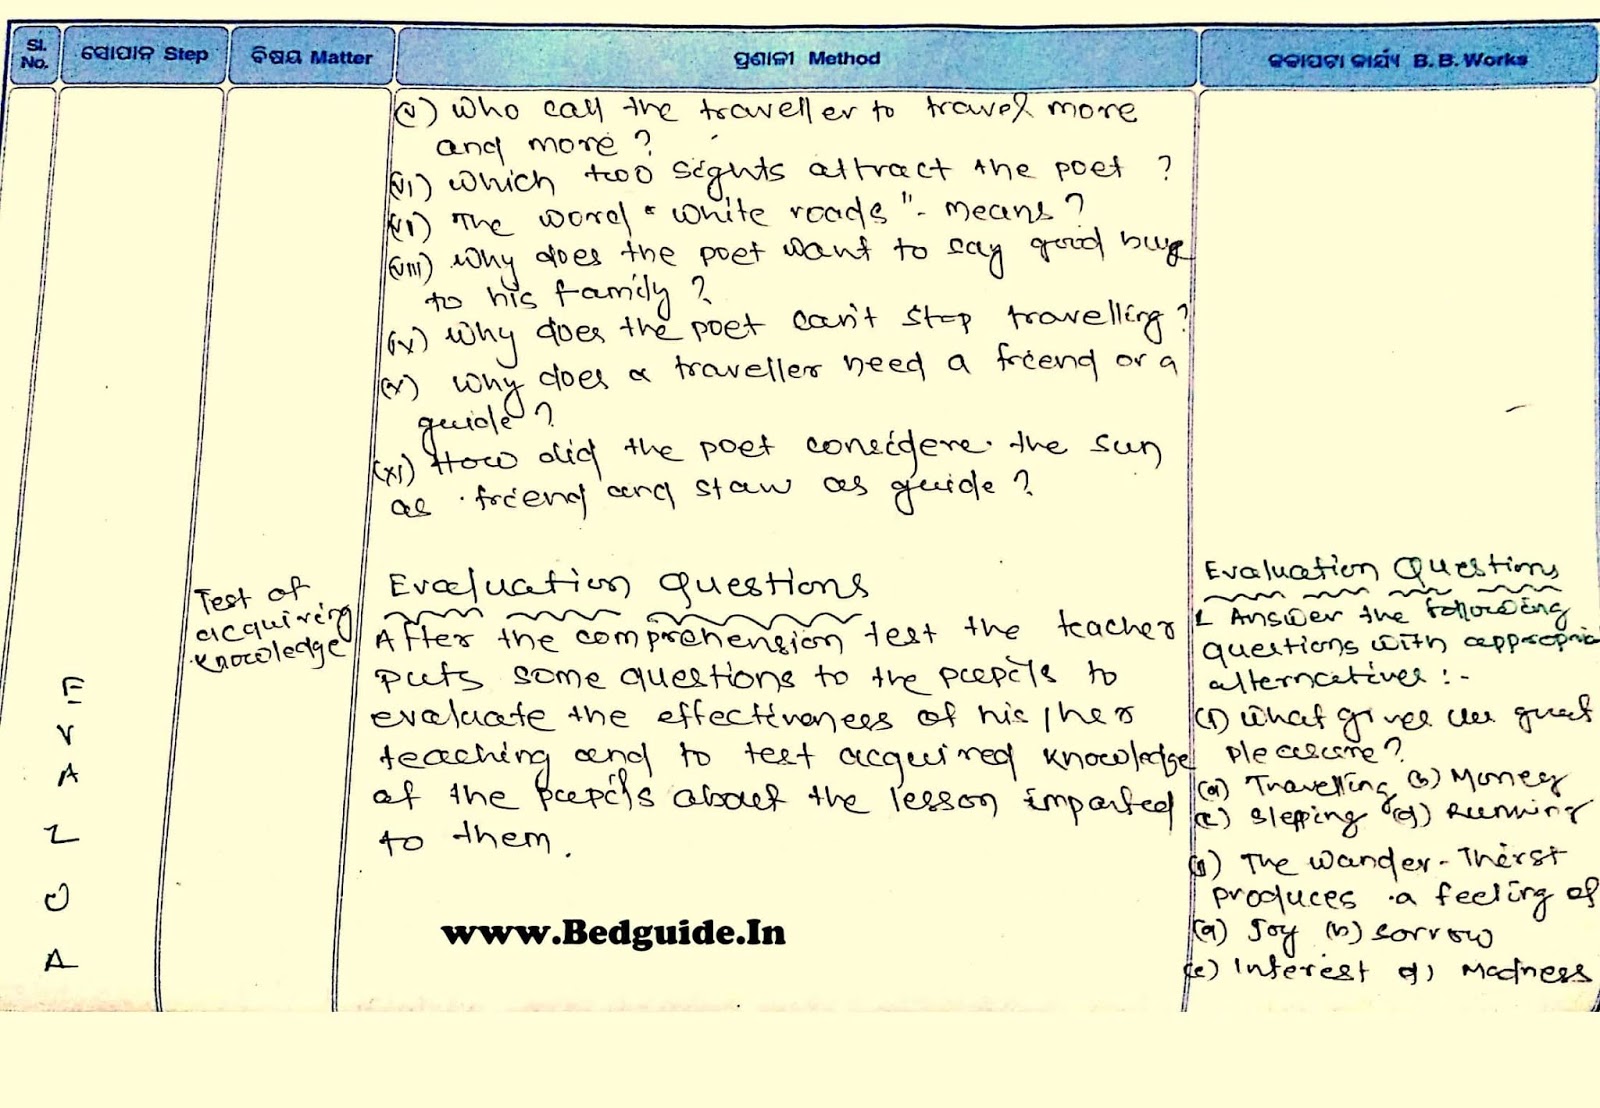 Sl. No.
ସୋପାନ Step
ବିଷୟ Matter
ପ୍ରଣାଳୀ Method
କଳାପଟା କାର୍ଯ୍ୟ B. B. Works
(v) Who call the traveller to travel more
and more ?
(vi) which two sights attract the poet ?
(vii) The word "white roads" - means?
(viii) why does the poet want to say good buy
to his family ?
(ix) why does the poet can't stop travelling ?
(x) why does a traveller need a friend or a
guide ?
(xi) How did the poet considere the sun
as friend and staw as guide ?
Test of
acquiring
knowledge
Evaluation questions
After the comprehension test the teacher
puts some questions to the pupils to
evaluate the effectiveness of his/her
teaching and to test acquired knowledge
of the pupils about the lesson imparted
to them.
E
V
A
L
U
A
www.Bedguide.In
Evaluation Questions
1 Answer the following
questions with appropria
alternatives :-
(i) what gives us great
pleasure ?
(a) Travelling (b) Money
(c) Slepping (d) Running
(ii) The wander-Thirst
produces a feeling of
(a) Joy (b) sorrow
(c) Interest d) Madness